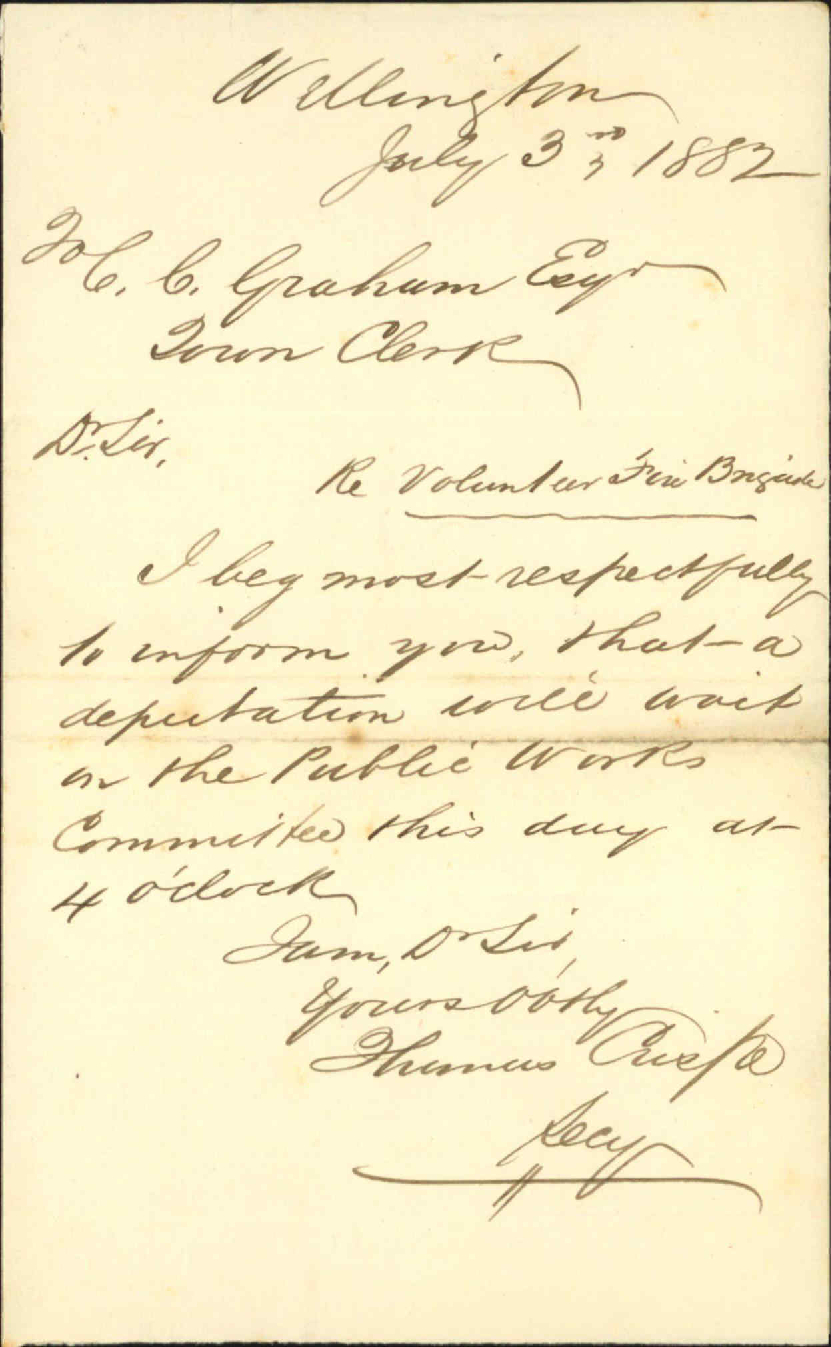 Wellington
July 3rd, 1882
To C. C. Graham Esqr
Town Clerk
Dr. Sir,
Re Volunteer Fire Brigade
I beg most respectfully
to inform you, that a
deputation will wait
on the Public Works
Committee this day at
4 o'clock
I am, Dr Sir,
Yours Obtly
Thomas Crispe
Secy